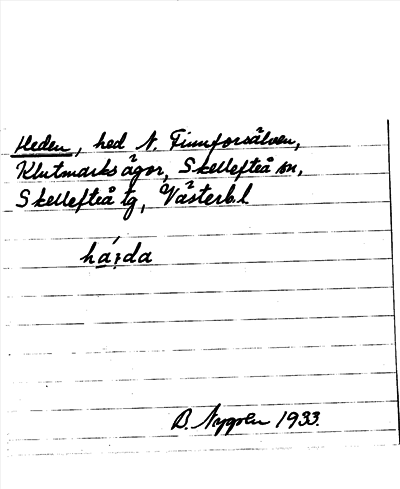 Heden, hed N. Finnforsälven,
Klutmarks ägor, Skellefteå sn,
Skellefteå tg, Västerb.l
há:da
B. Nygren 1933.